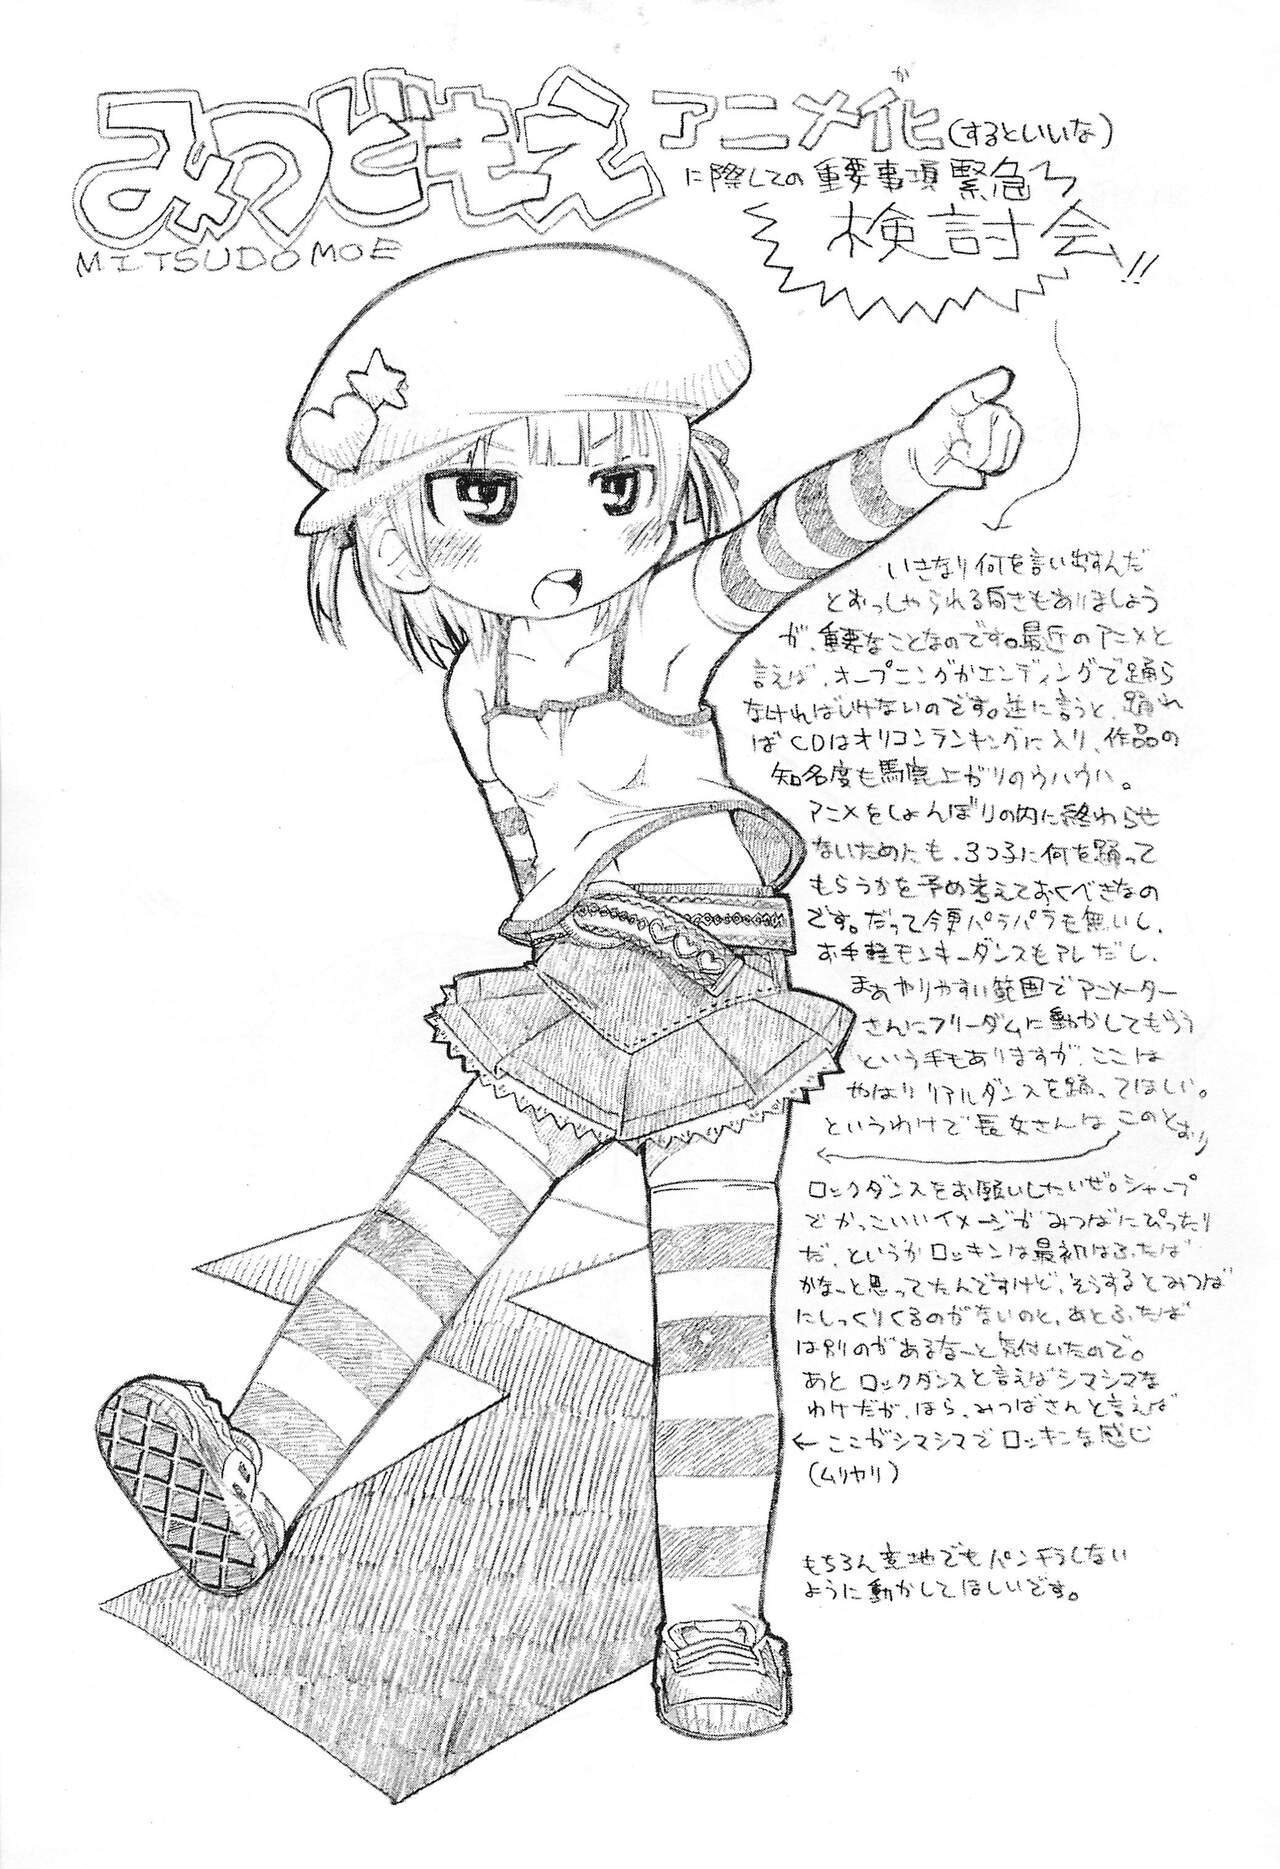 みつどもえ
MITSUDOMOE
アニメ化(するといいな)
か
に際しての重要事項緊急
検討会!!
いきなり何を言い出すんだ
とおっしゃられる向きもありましょう
が、重要なことなのです。最近のアニメと
言えば、オープニングかエンディングで踊ら
なければいけないのです。逆に言うと、踊れ
ばCDはオリコンランキングに入り、作品の
知名度も馬鹿上がりのウハウハ。
アニメをしょんぼりの内に終わらせ
ないためにも、3つ子に何を踊って
もらうかを予め考えておくべきなの
です。だって今更パラパラも無いし、
お手軽モンキーダンスもアレだし、
まあやりやすい範囲でアニメーター
さんにフリーダムに動かしてもらう
という手もありますが、ここは
やはりリアルダンスを踊ってほしい。
というわけで長女さんは、このとおり
ロックダンスをお願いしたいぜ。シャープ
でかっこいいイメージがみつばにぴったり
だ、というかロッキンは最初はふたば
かなーと思ってたんですけど、そうするとみつば
にしっくりくるのがないのと、あとふたば
は別のがあるなーと気付いたので。
あとロックダンスと言えばシマシマな
わけだが、ほら、みつばさんと言えば
←ここがシマシマでロッキンな感じ
(ムリヤリ)
もちろん意地でもパンチラしない
ように動かしてほしいです。